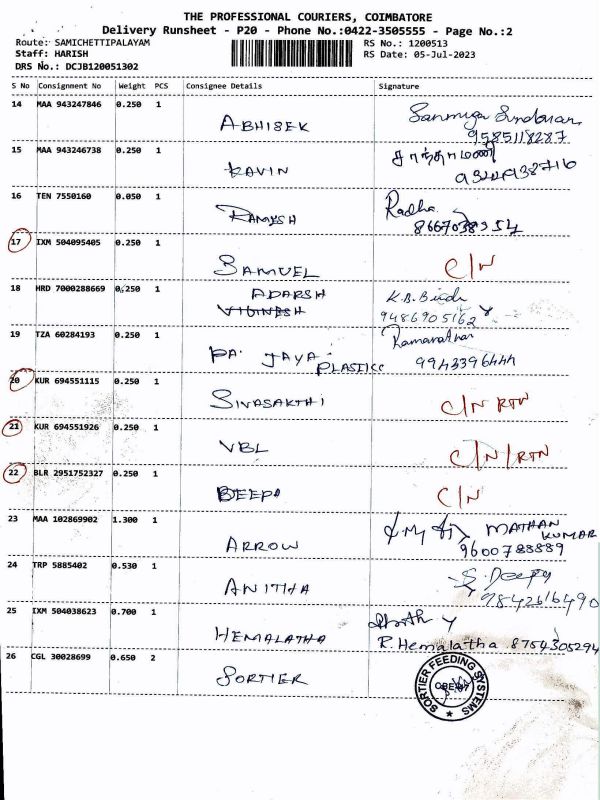 THE PROFESSIONAL COURIERS, COIMBATORE
Delivery Runsheet - P20 - Phone No.:0422-3505555 - Page No.:2
Route: SAMICHETTIPALAYAM RS No.: 1200513
Staff: HARISH RS Date: 05-Jul-2023
DRS No.: DCJB120051302
S No Consignment No Weight PCS Consignee Details Signature
14 MAA 943247846 0.250 1
ABHISEK
9585118287
15 MAA 943246738 0.250 1
KAVIN
சாந்தாமணி
16 TEN 7550160 0.050 1
RAMESH
Radha
17 IXM 504095405 0.250 1
SAMUEL C/N
18 HRD 7000288669 0.250 1
ADARSH
VIGINESH
K.B. Bindh
9486905162
19 TZA 60284193 0.250 1
PA. JAYA. PLASTICS
9943396444
20 KUR 694551115 0.250 1
SIVASAKTHI C/N RTN
21 KUR 694551926 0.250 1
VBL C/N/RTN
22 BLR 2951752327 0.250 1
DEEPA C/N
23 MAA 102869902 1.300 1
ARROW
MATHAN KUMAR
9600788889
24 TRP 5885402 0.530 1
ANITHA
S. Deepa
9842616490
25 IXM 504038623 0.700 1
HEMALATHA
R. Hemalatha 8754305294
26 CGL 30028699 0.650 2
SORTIER
SORTIER FEEDING SYSTEMS